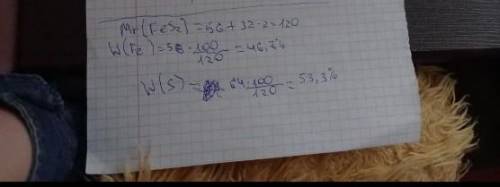 Mr(FeS2)=56+32·2=120
W(Fe)=56·100/120=46,7%
W(S)=64·100/120=53,3%